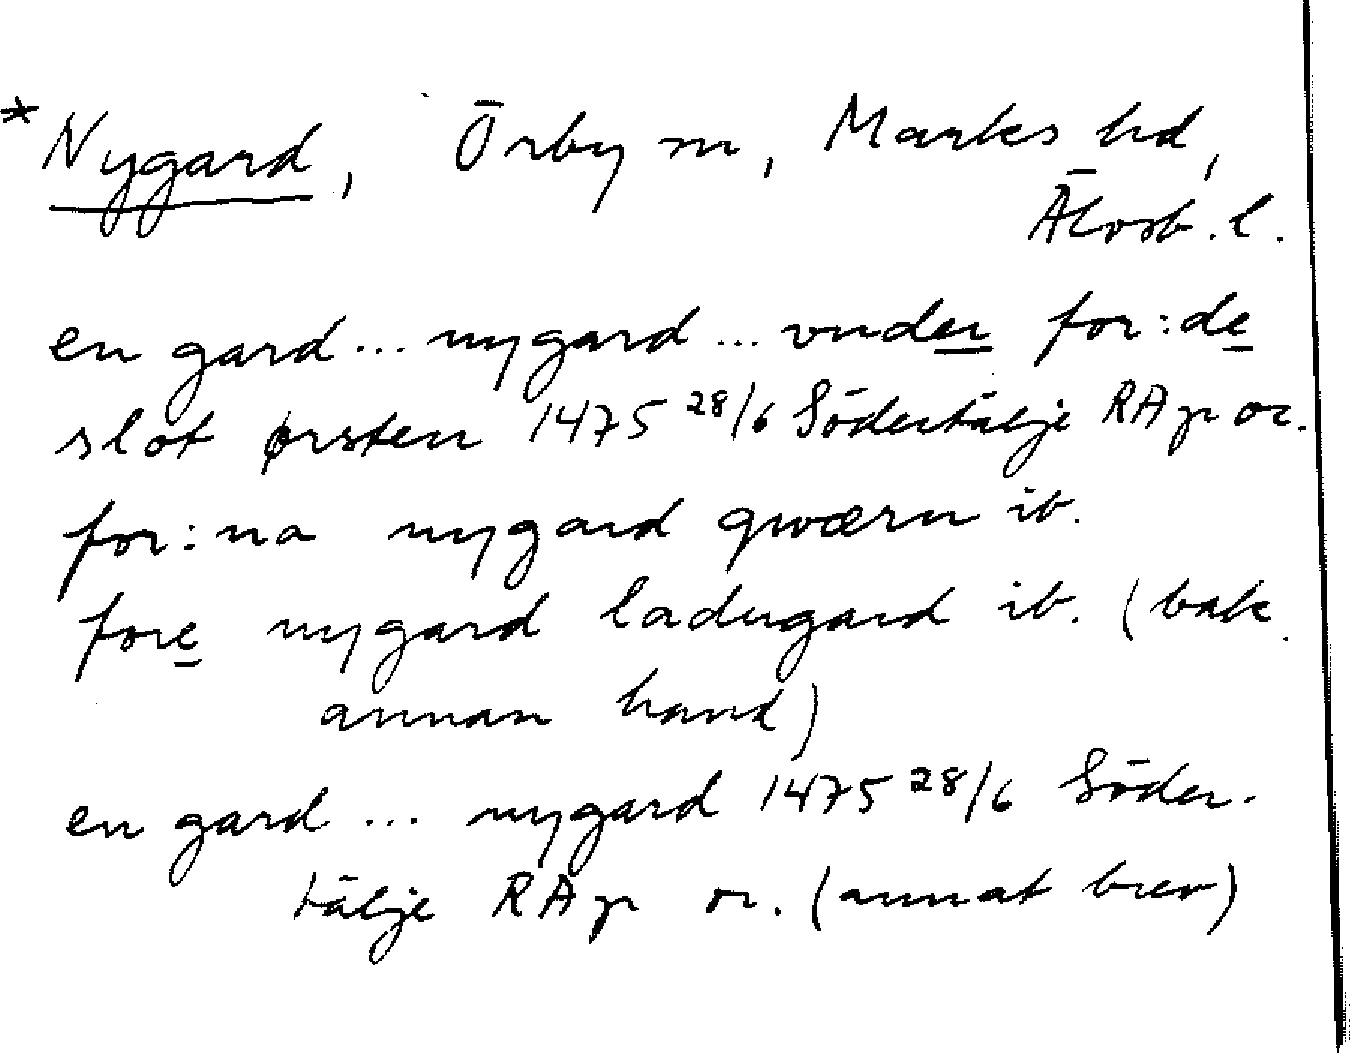 *Nygard, Örby sn, Marks hd,
Älvsb. l.
en gard ... nygard ... vnder for:de
slot ørsten 1475 28/6 Södertälje RAp or.
for:na nygard qwærn ib.
fore nygard ladugard ib. (bak.
annan hand)
en gard ... nygard 1475 28/6 Söder-
tälje RAp or. (annat brev)